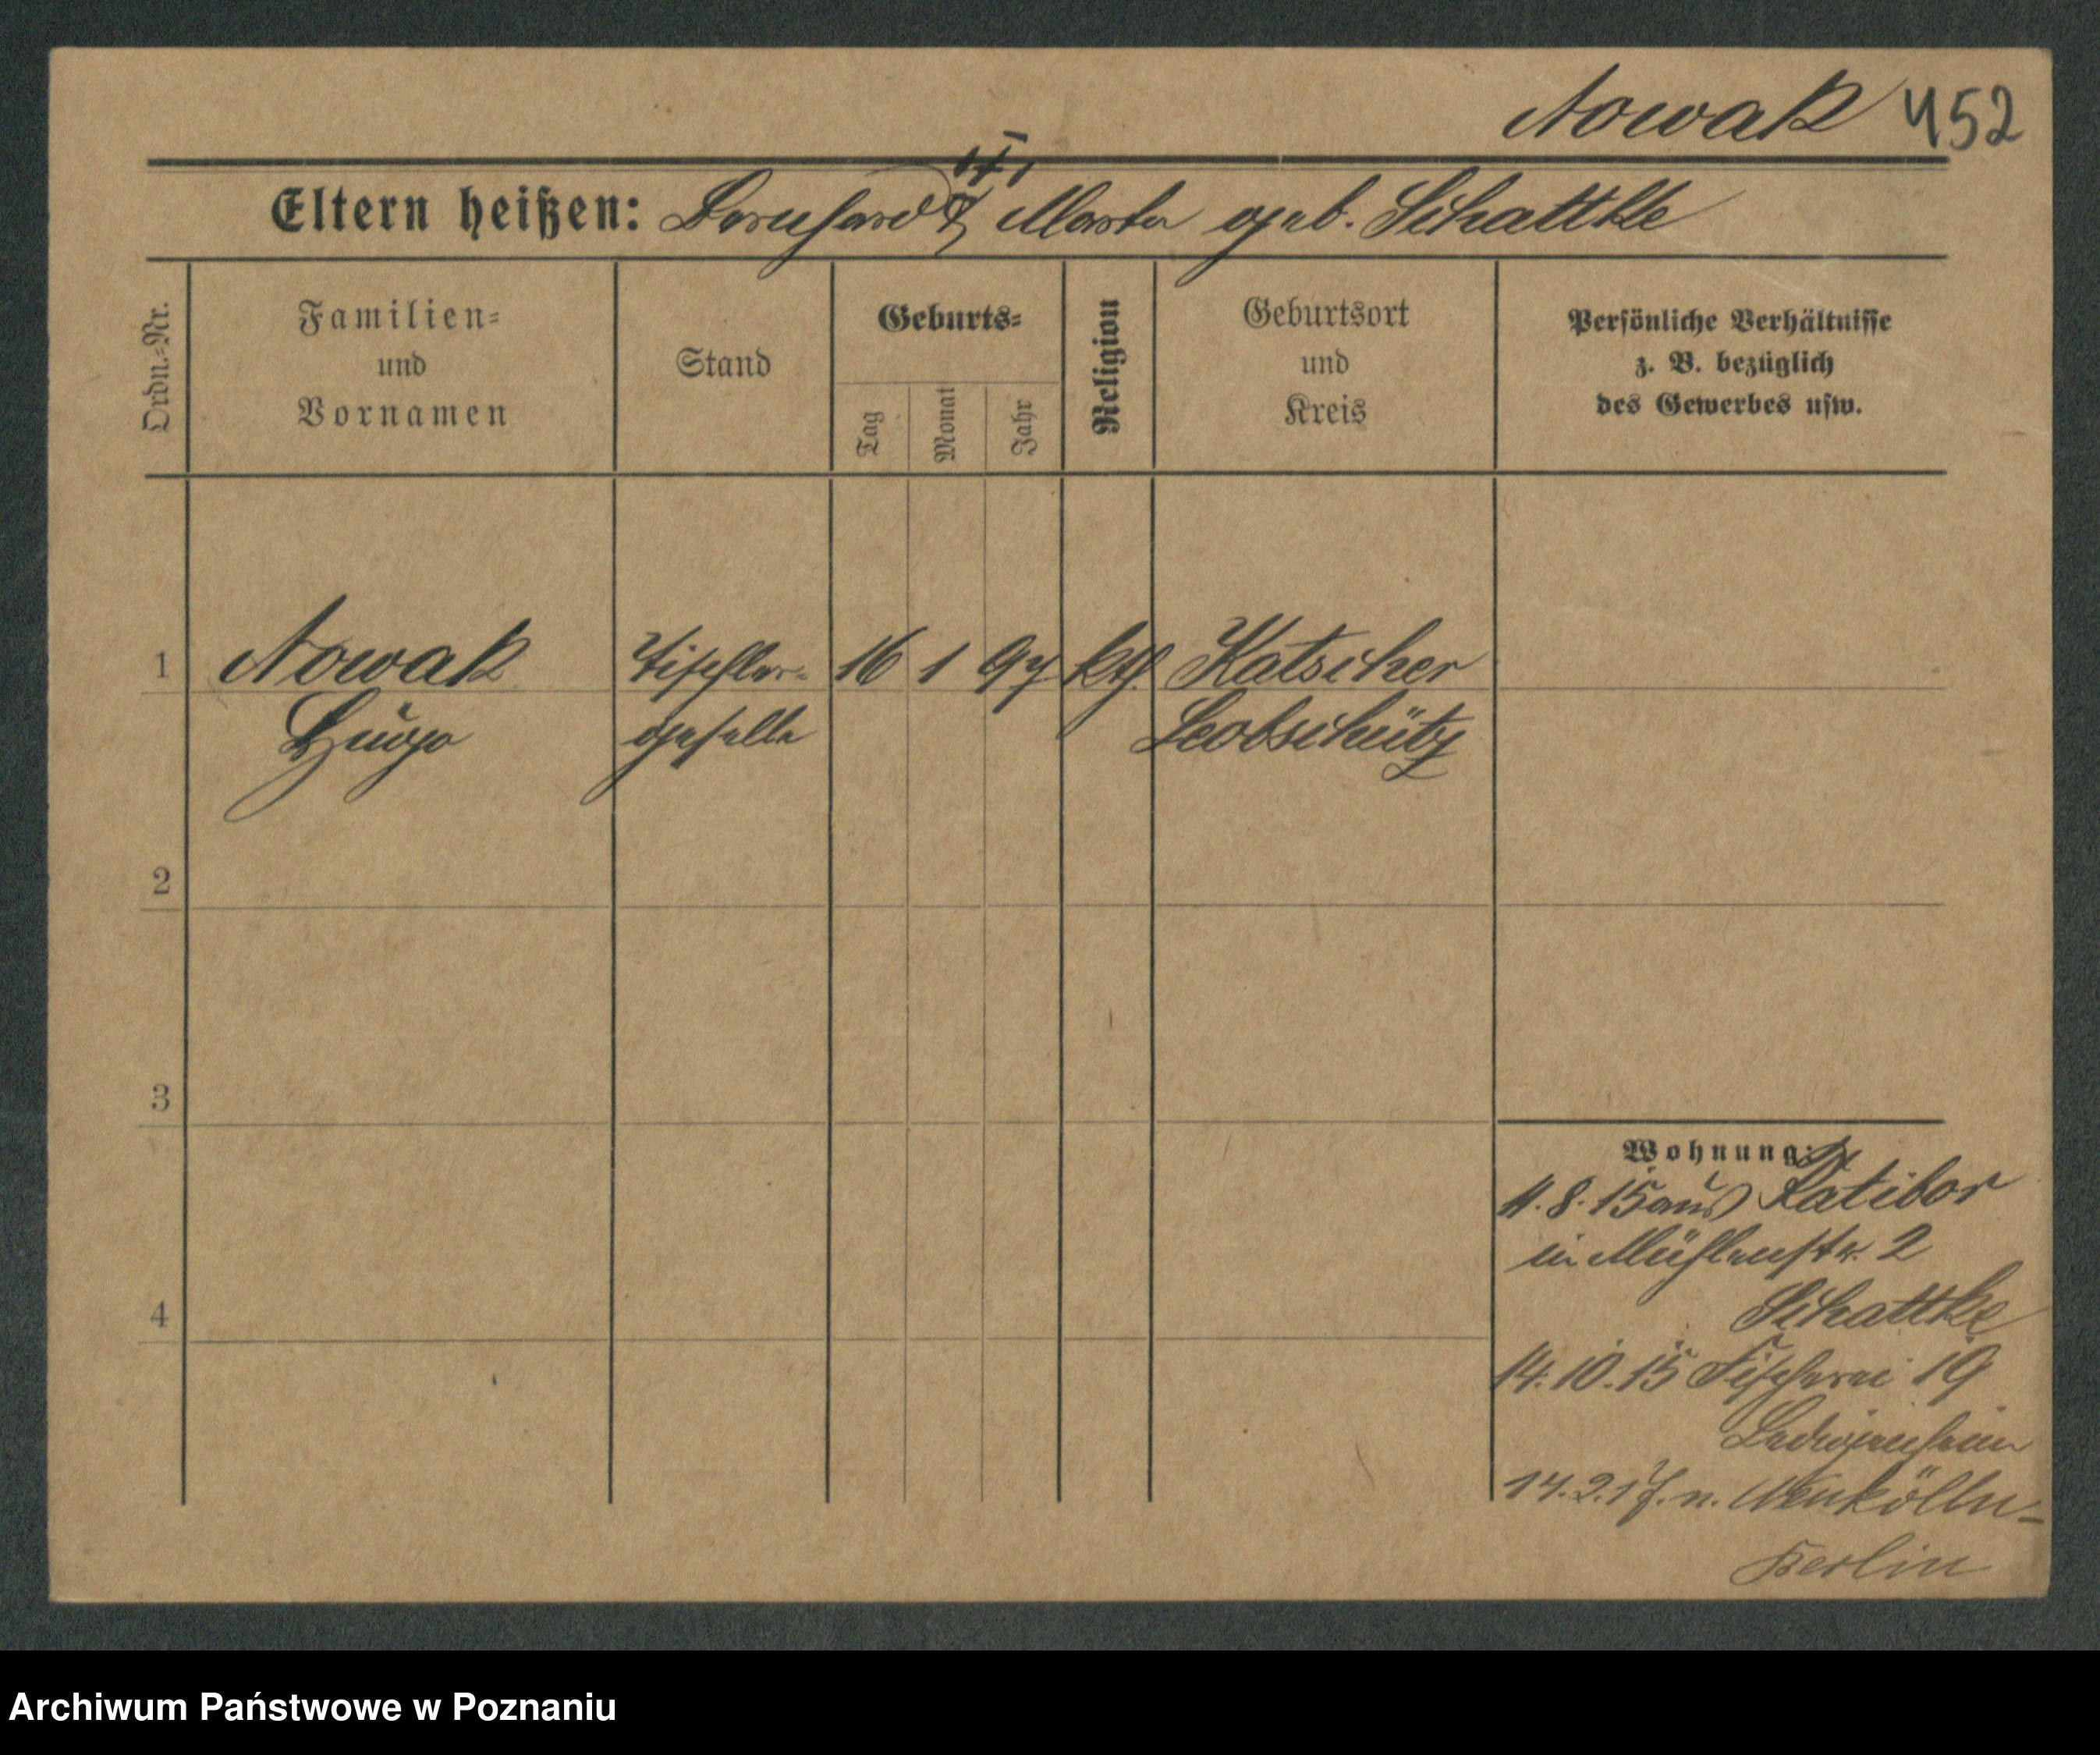 Nowak 452
Eltern heißen: Bernhard u. Marta geb. Schattke
Ordn.-Nr.
Familien-
und
Vornamen
Stand
Geburts-
Tag
Monat
Jahr
Religion
Geburtsort
und
Kreis
Persönliche Verhältnisse
z. B. bezüglich
des Gewerbes usw.
1 Nowak Tischler- 16 1 97 kth. Katscher
Hugo geselle Leobschütz
2
3
4
Wohnung:
11.8.15 aus Ratibor
in Mühlenstr. 2
Schattke
14.10.15 Fischerei 19
14.2.17. n. Neukölln-
Berlin
Archiwum Państwowe w Poznaniu